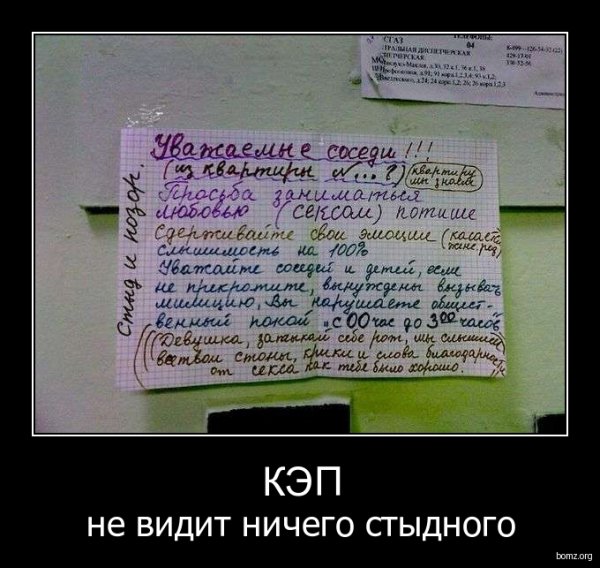 СТАЗ
ТЕЛЕФОНЫ:
04
Уважаемые соседи !!!
(из квартиры №...?) (квартиру мы знаем)
Просьба заниматься
любовью (сексом) потише
Сдерживайте свои эмоции (касается женс. ред)
слышимость на 100%
Уважайте соседей и детей, если
не прекратите, вынуждены вызывать
милицию, Вы нарушаете общест-
венный покой "с 00 час до 3 00 часов"
(((Девушка, затыкай себе рот, мы слышим
все твои стоны, крики и слова благодарности
от секса как тебе было хорошо. !!
Стыд и позор.
КЭП
не видит ничего стыдного
bomz.org